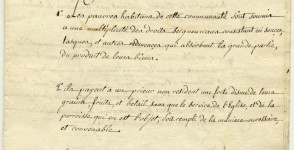 1° Les pauvres habitans de cette communauté sont soumis
a une multiplicité des droits seigneuriaux consistant en
tasques, et autres redevances qui absorbent la grande partie,
du produit de leurs biens.
Ils payent a un prieur non resident une forte disme de leurs
grains fruits, et betail sans que le service de l'Eglise, et de la
parroisse qui en est l'objet, soit rempli de la maniere
et convenable.